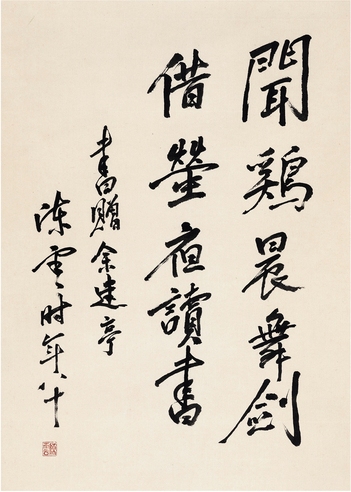 聞鷄晨舞劍
借螢夜讀書
書贈余建亭
陈雲时年八十